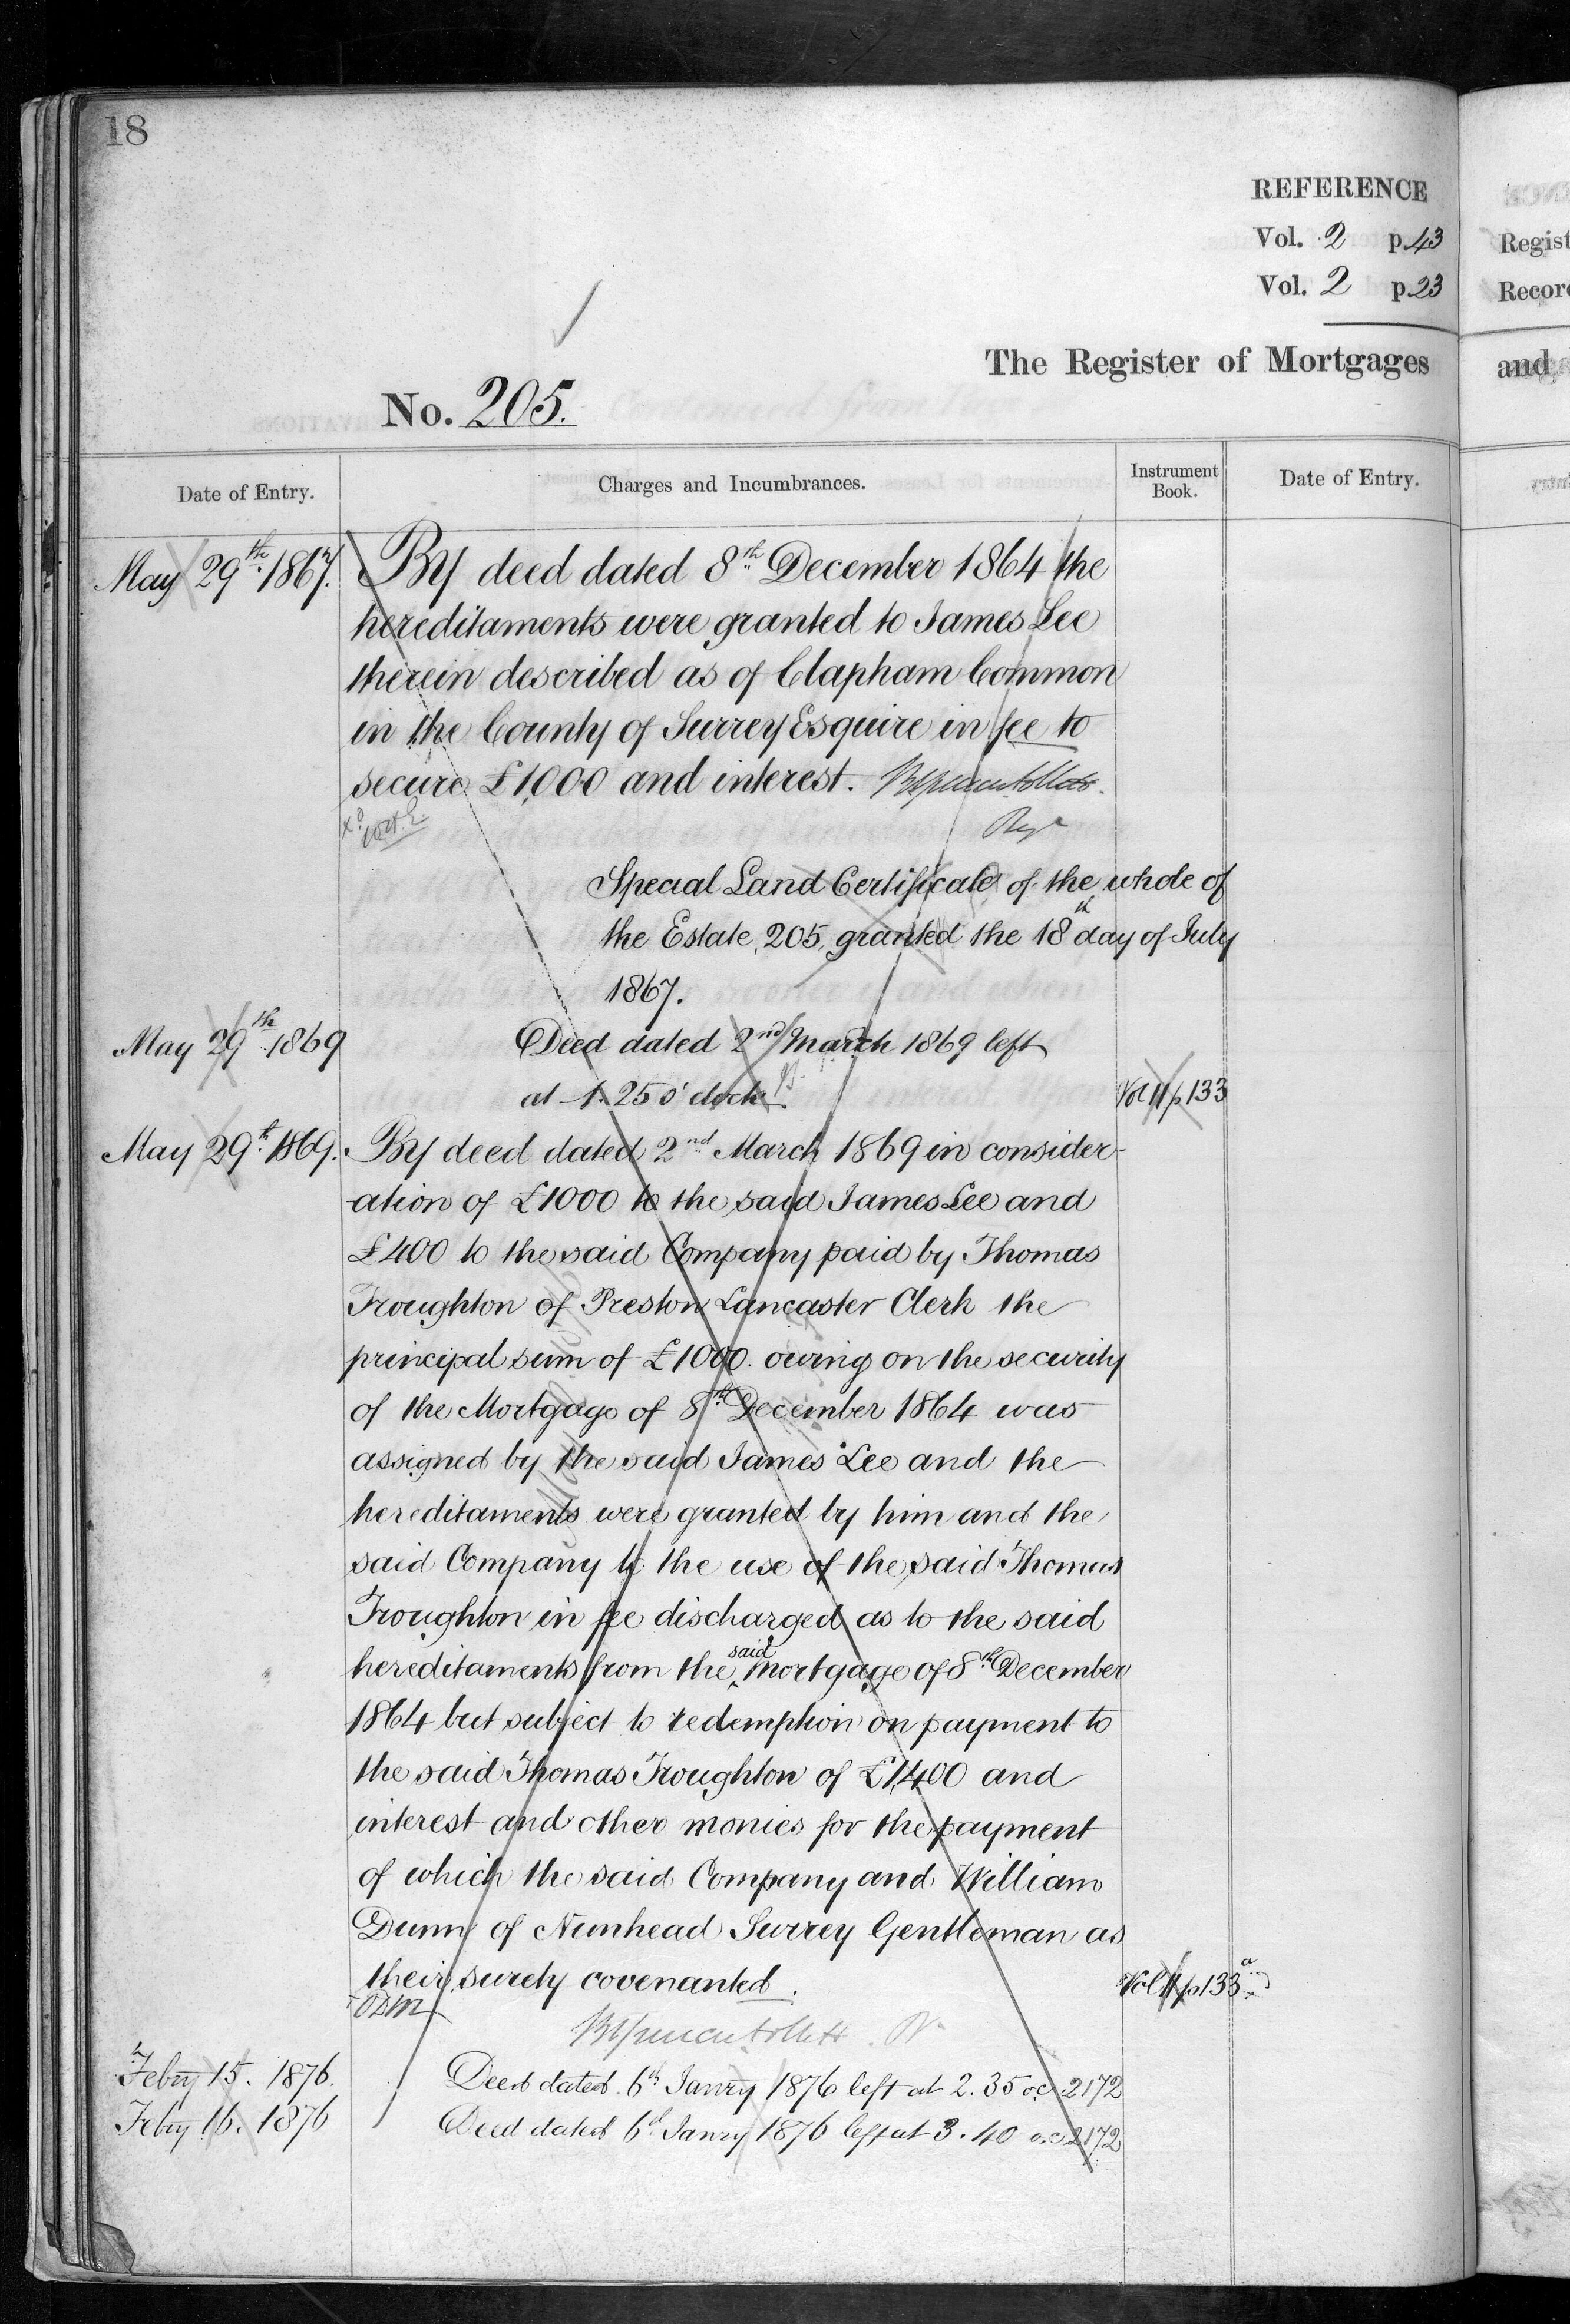 18
REFERENCE
Vol. 2 p. 43
Vol. 2 p. 23
The Register of Mortgages
No. 205.
Date of Entry.
Charges and Incumbrances.
Instrument Book.
Date of Entry.
May 29th 1867.
By deed dated 8th December 1864 the
hereditaments were granted to James Lee
therein described as of Clapham Common
in the County of Surrey Esquire in fee to
secure £1,000 and interest.
Special Land Certificate of the whole of
the Estate, 205, granted the 18th day of July
1867.
May 29th 1869
Deed dated 2nd March 1869 left
at 1.25 o'clock
Vol 11 p 133
May 29th 1869.
By deed dated 2nd March 1869 in consider-
-ation of £1000 to the said James Lee and
£400 to the said Company paid by Thomas
Troughton of Preston Lancaster Clerk the
principal sum of £1000. owing on the security
of the Mortgage of 8th December 1864 was
assigned by the said James Lee and the
hereditaments were granted by him and the
said Company to the use of the said Thomas
Troughton in fee discharged as to the said
hereditaments from the said mortgage of 8th December
1864 but subject to redemption on payment to
the said Thomas Troughton of £1,400 and
interest and other monies for the payment
of which the said Company and William
Dunn of Nunhead Surrey Gentleman as
their surety covenanted.
Vol 11 p 133a
Febry 15. 1876.
Deed dated 6th Janry 1876 left at 2.35 o.c. 2172
Febry 16. 1876
Deed dated 6th Janry 1876 left at 3.40 o.c 2172
Regist
Recor
and